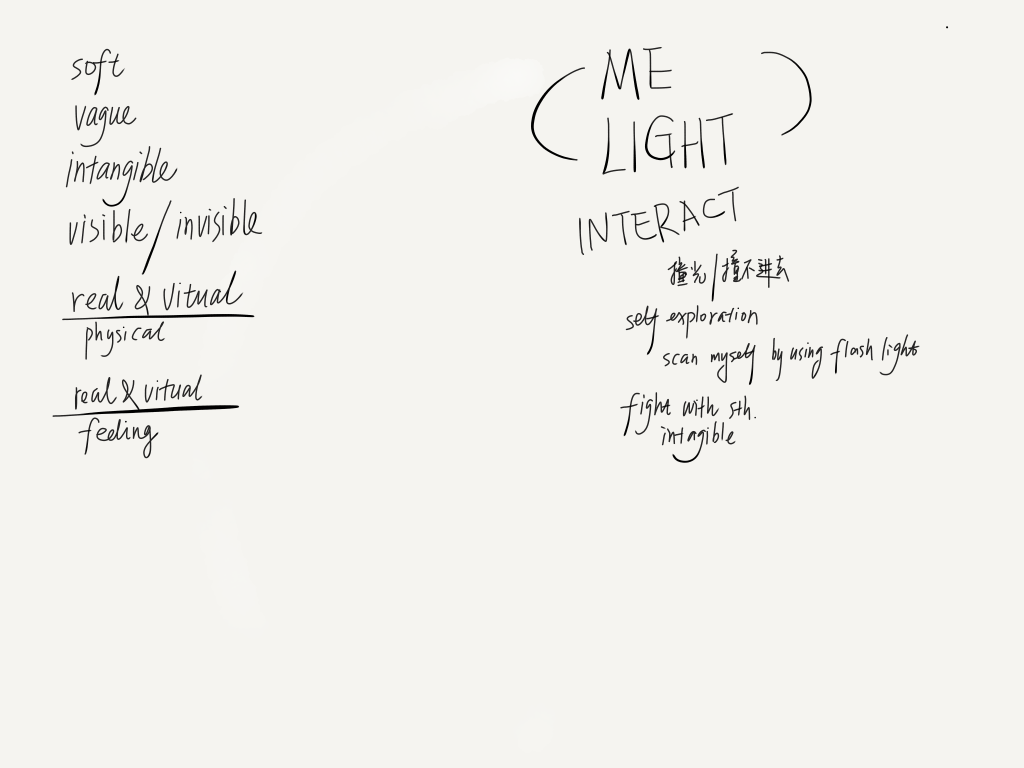 soft
vague
intangible
visible/invisible
real & vitual
physical
real & vitual
feeling
ME
LIGHT
INTERACT
撞光/撞不进去
self exploration
scan myself by using flash light
fight with sth.
intagible